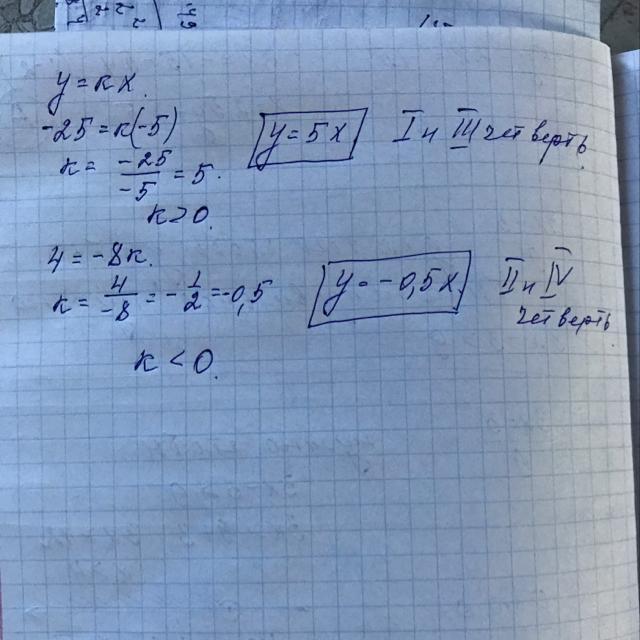 y = kx.
-25 = k(-5)
k = -25/-5 = 5.
k > 0.
y = 5x
I и III четверть.
4 = -8k.
k = 4/-8 = -1/2 = -0,5
k < 0.
y = -0,5x
II и IV
четверть.